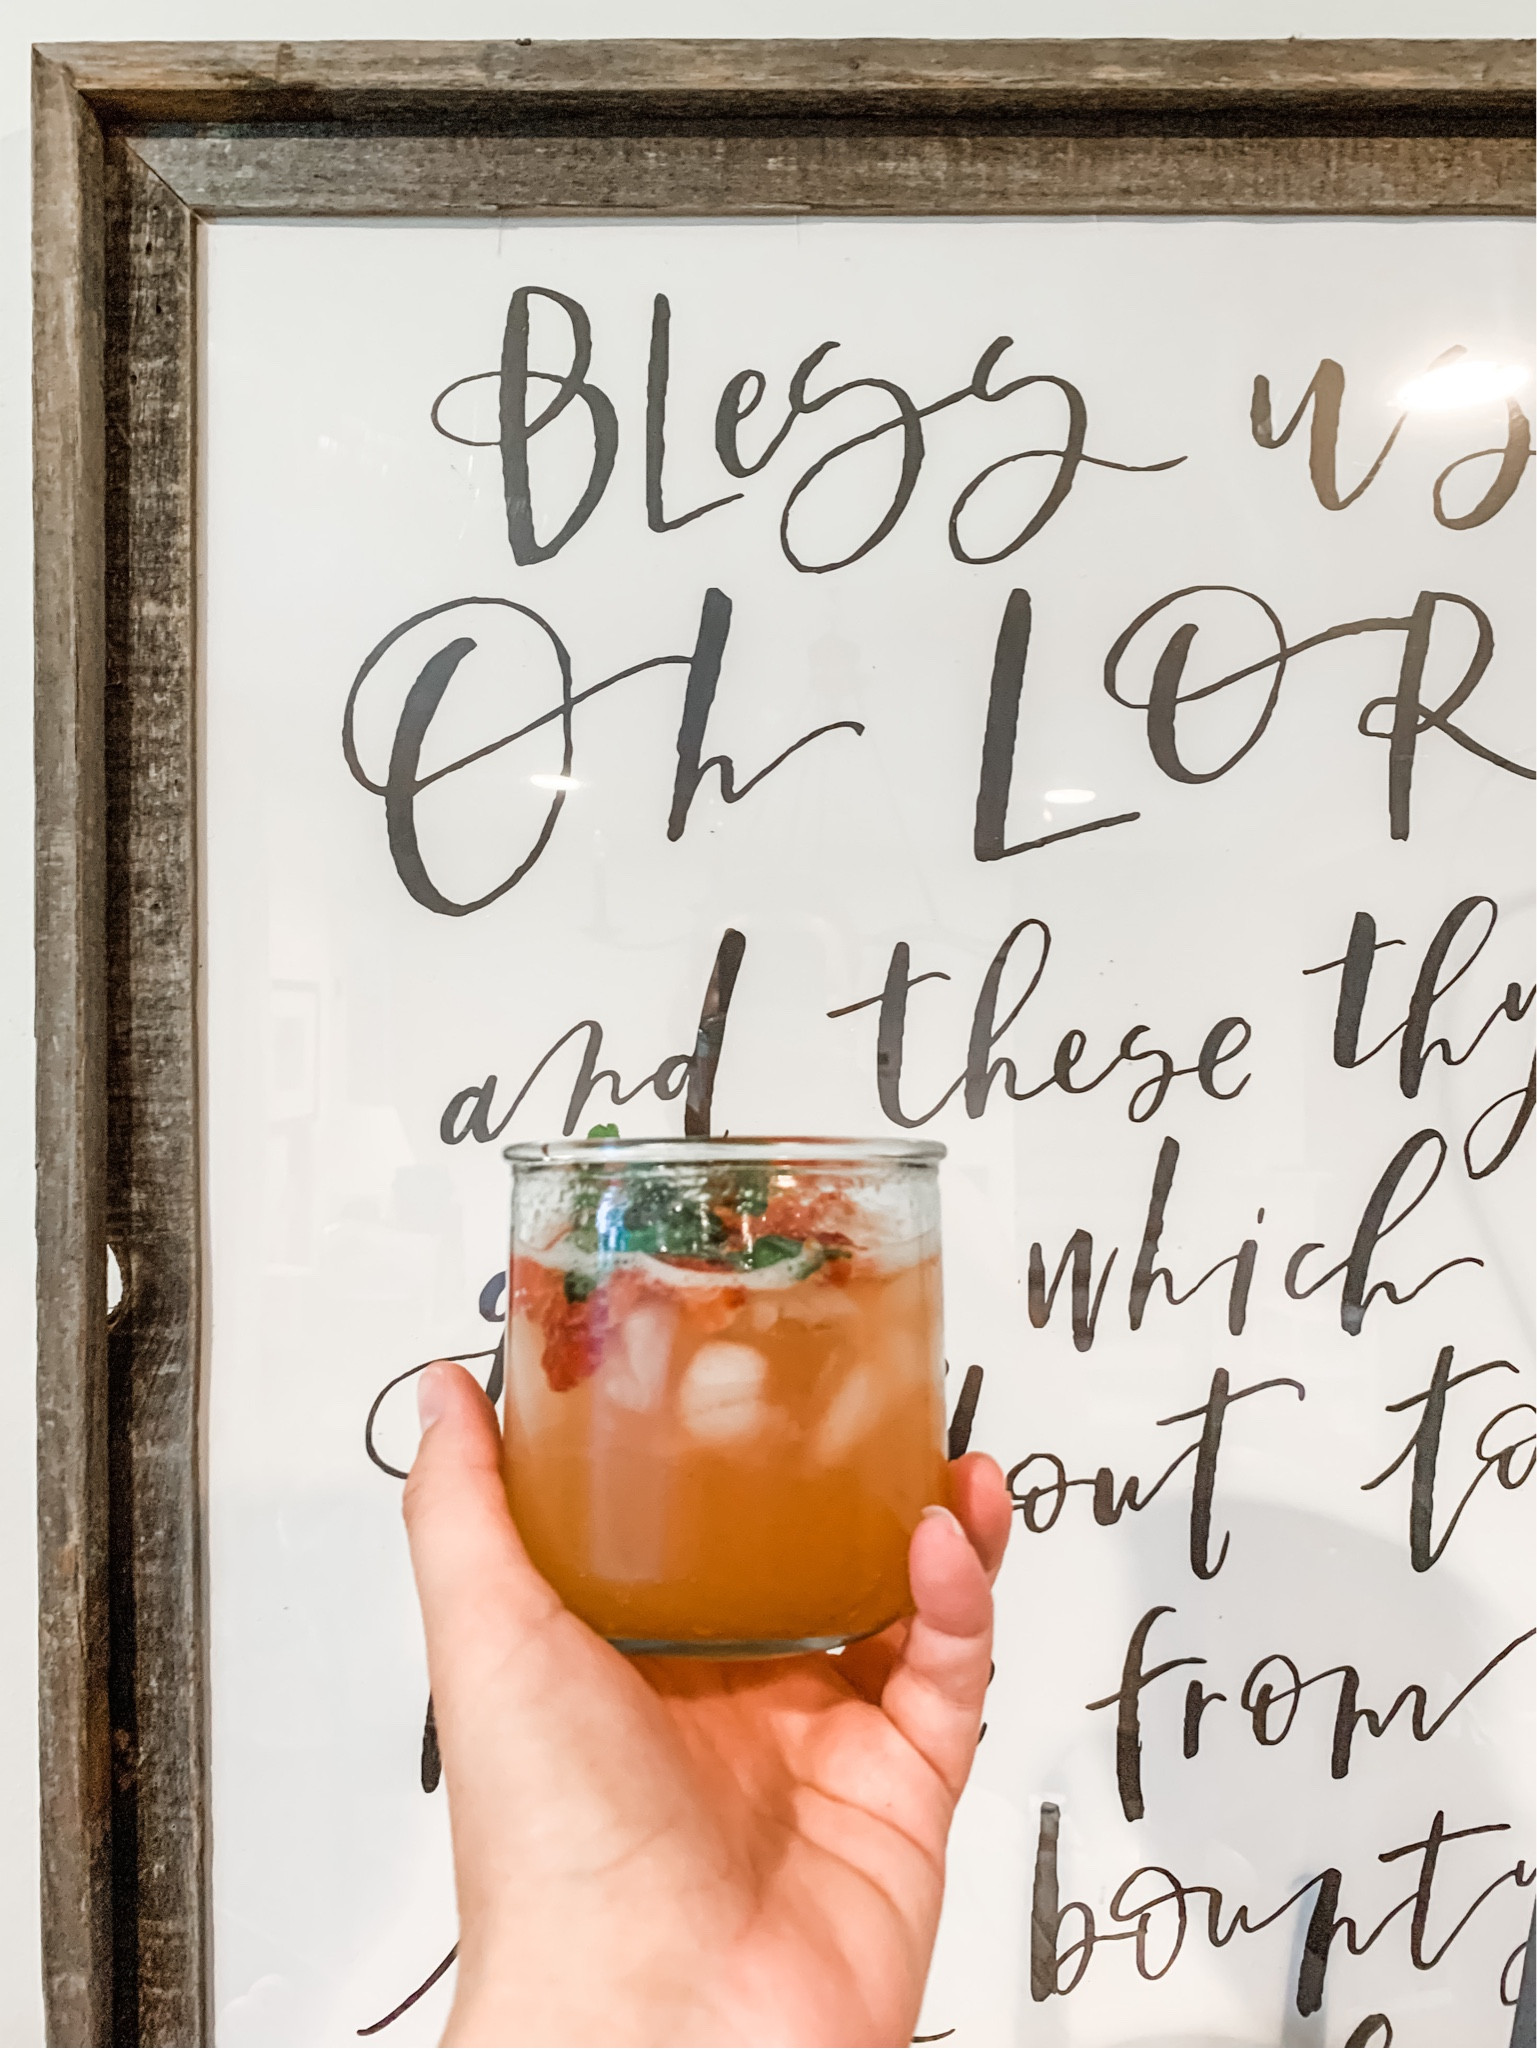 Bless us
Oh LOR
and these thy
which
out to
from
bounty